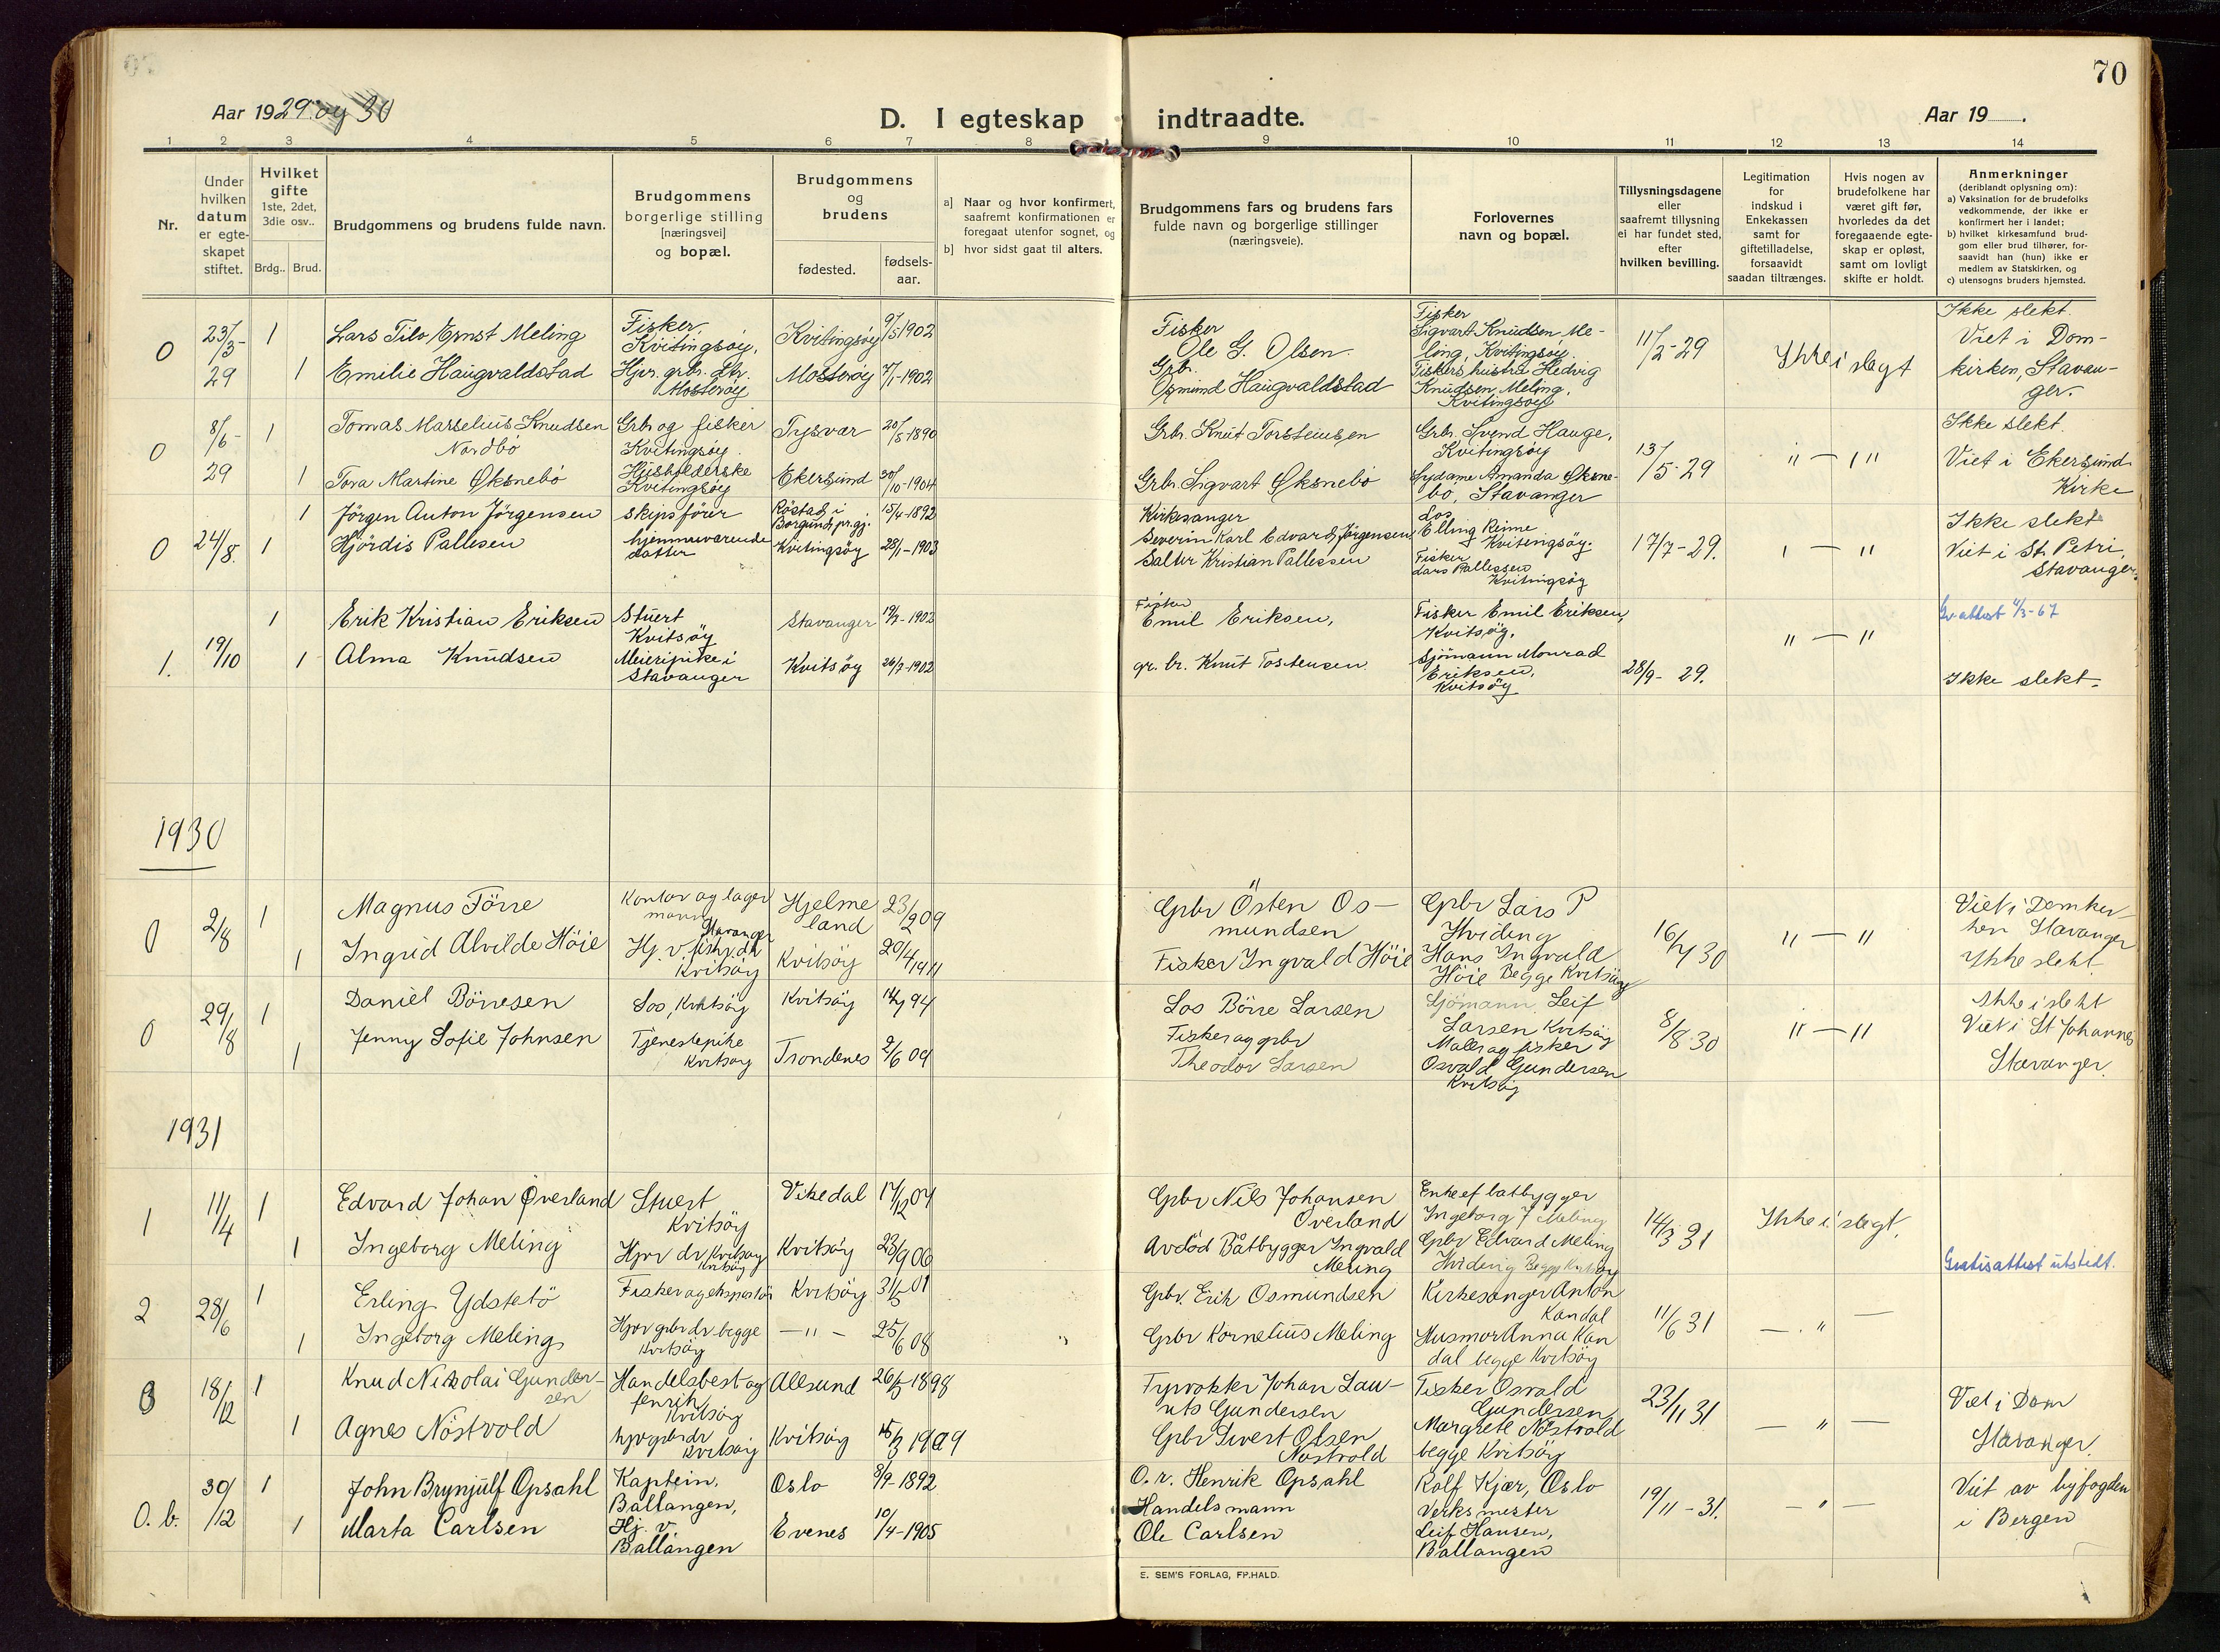 70
Aar 1929 og 30
D. I egteskap indtraadte.
Aar 19 .
1 2 3 4 5 6 7 8 9 10 11 12 13 14
Nr.
Under hvilken datum er egteskapet stiftet.
Hvilket gifte
1ste, 2det, 3die osv..
Brdg.. Brud.
Brudgommens og brudens fulde navn.
Brudgommens borgerlige stilling [næringsvei] og bopæl.
Brudgommens og brudens
fødested.
fødsels-aar.
a] Naar og hvor konfirmert, saafremt konfirmationen er foregaat utenfor sognet, og
b] hvor sidst gaat til alters.
Brudgommens fars og brudens fars
fulde navn og borgerlige stillinger
(næringsveie).
Forlovernes
navn og bopæl.
Tillysningsdagene eller saafremt tillysning ei har fundet sted, efter hvilken bevilling.
Legitimation for indskud i Enkekassen samt for giftetilladelse, forsaavidt saadan tiltrænges.
Hvis nogen av brudefolkene har været gift før, hvorledes da det foregaaende egteskap er opløst, samt om lovligt skifte er holdt.
Anmerkninger
(deriblandt oplysning om):
a) Vaksination for de brudefolks vedkommende, der ikke er konfirmert her i landet;
b) hvilket kirkesamfund brudgom eller brud tilhører, forsaavidt han (hun) ikke er medlem av Statskirken, og
c) utensogns bruders hjemsted.
0 23/3-29 1 Lars Tilo Ernst Meling Fisker, Kvitingsøy. Kvitingsøy 9/5-1902
1 Emilie Haugvaldstad Hjv. grbr. dtr. Mosterøy Mosterøy 7/1-1902
Fisker Ole G. Olsen.
Grb. Osmund Haugvaldstad
Fisker Sigvart Knudsen Meling, Kvitingsøy.
Fiskers hustru Hedvig Knudsen Meling, Kvitingsøy
11/2-29 Ikke i slagt
Ikke slekt. Viet i Domkirken, Stavanger.
0 8/6-29 1 Tomas Marselius Knudsen Nordbø Grb. og fisker Kvitingsøy. Tysvær 20/8-1890
1 Tora Martine Øksnebø Husholderske Kvitingsøy Ekersund 30/10-1904
Grb. Knut Torsteinsen
Grb. Sigvart Øksnebø
Grb. Svend Hauge, Kvitingsøy
Sydame Amanda Øksnebø, Stavanger
13/5-29 " — "
Ikke slekt. Viet i Ekersund Kirke
0 24/8. 1 Jörgen Anton Jörgensen skipsförer Röstad i Borgund pr.gj. 15/4-1892
1 Hjördis Pallesen hjemmeværende datter Kvitingsöy 28/1-1903
Kirkesanger Severin Karl Edvard Jörgensen
Salter Kristian Pallesen
Los Elling Reime Kvitingsöy.
Fisker Lars Pallesen Kvitingsöy
17/7-29. " — "
Ikke slekt Viet i St. Petri, Stavanger.
1. 19/10 1 Erik Kristian Eriksen Stuert Kvitsöy Stavanger 19/2-1902
1 Alma Knudsen Meieripike i Stavanger Kvitsöy 26/7-1902
Fisker Emil Eriksen,
gr. br. Knut Tostensen
Fisker Emil Eriksen, Kvitsöy.
Sjömann Monrad Eriksen, Kvitsöy
28/9-29. " — "
Gr. attest 4/3-67
Ikke slekt.
1930
0 2/8 1 Magnus Törre Kontor og lagermann Stavanger Hjelmeland 23/2 09
1 Ingrid Alvilde Höie Hj. v. fiskr. dtr Kvitsöy Kvitsöy 20/4 1911
Gpbr Östen Osmundsen
Fisker Ingvald Höie
Gpbr Lars P Hviding
Hans Ingvald Höie Begge Kvitsöy
16/7 30 " — "
Viet i Domkirken Stavanger Ikke slekt
0 29/8 1 Daniel Börresen Los, Kvitsöy Kvitsöy 14/7 94
1 Jenny Sofie Johnsen Tjenestepike Kvitsöy Trondenes 2/6 09
Los Börre Larsen
Fisker og gpbr Theodor Larsen
Sjömann Leif Larsen Kvitsöy
Maler og fisker Osvald Gundersen Kvitsöy
8/8 30 " — "
Ikke i slekt Viet i St Johannes Stavanger.
1931
1 11/4 1 Edvard Johan Överland Stuert Kvitsöy Vikedal 17/12 04
1 Ingeborg Meling Hjvr dr Kvitsöy Kvitsöy 23/9 06
Gpbr Nils Johansen Överland
Avdöd Båtbygger Ingvald Meling
Enke ef båtbygger Ingeborg J Meling
Gpbr Edvard Meling Hviding Begge Kvitsöy
14/3 31 Ikke i slegt.
Gratisattest utstedt.
2 28/6 1 Erling Ydstebö Fisker og ekspeditör Kvitsöy 31/5 01
1 Ingeborg Meling Hjvr gpbr dr begge Kvitsöy — " — 25/6 08
Gpbr. Erik Osmundsen
Gpbr Kornelius Meling
Kirkesanger Anton Kandal
Husmor Anna Kandal begge Kvitsöy
11/6 31 — " —
3 18/12 1 Knud Nikolai Gundersen Handelsbest og fenrik Kvitsöy Ålesund 26/5 1898
1 Agnes Nöstvold hjv gpbr dr Kvitsöy Kvitsöy 15/3 1909
Fyrvokter Johan Lauits Gundersen
Gpbr Sivert Olsen Nöstvold
Fisker Osvald Gundersen
Margrete Nöstvold begge Kvitsöy
23/11 31 — " —
Viet i Dom Stavanger
0.b. 30/12 1 John Brynjulf Opsahl Kaptein, Ballangen, Oslo 8/9-1892
1 Marta Carlsen Hj. v. Ballangen Evenes 10/4-1905
O. r. Henrik Opsahl
Handelsmann Ole Carlsen
Rolf Kjær, Oslo
Verksmester Leif Hansen, Ballangen
19/11-31. — " —
Viet av byfogden i Bergen
E. SEM'S FORLAG, FP.HALD.